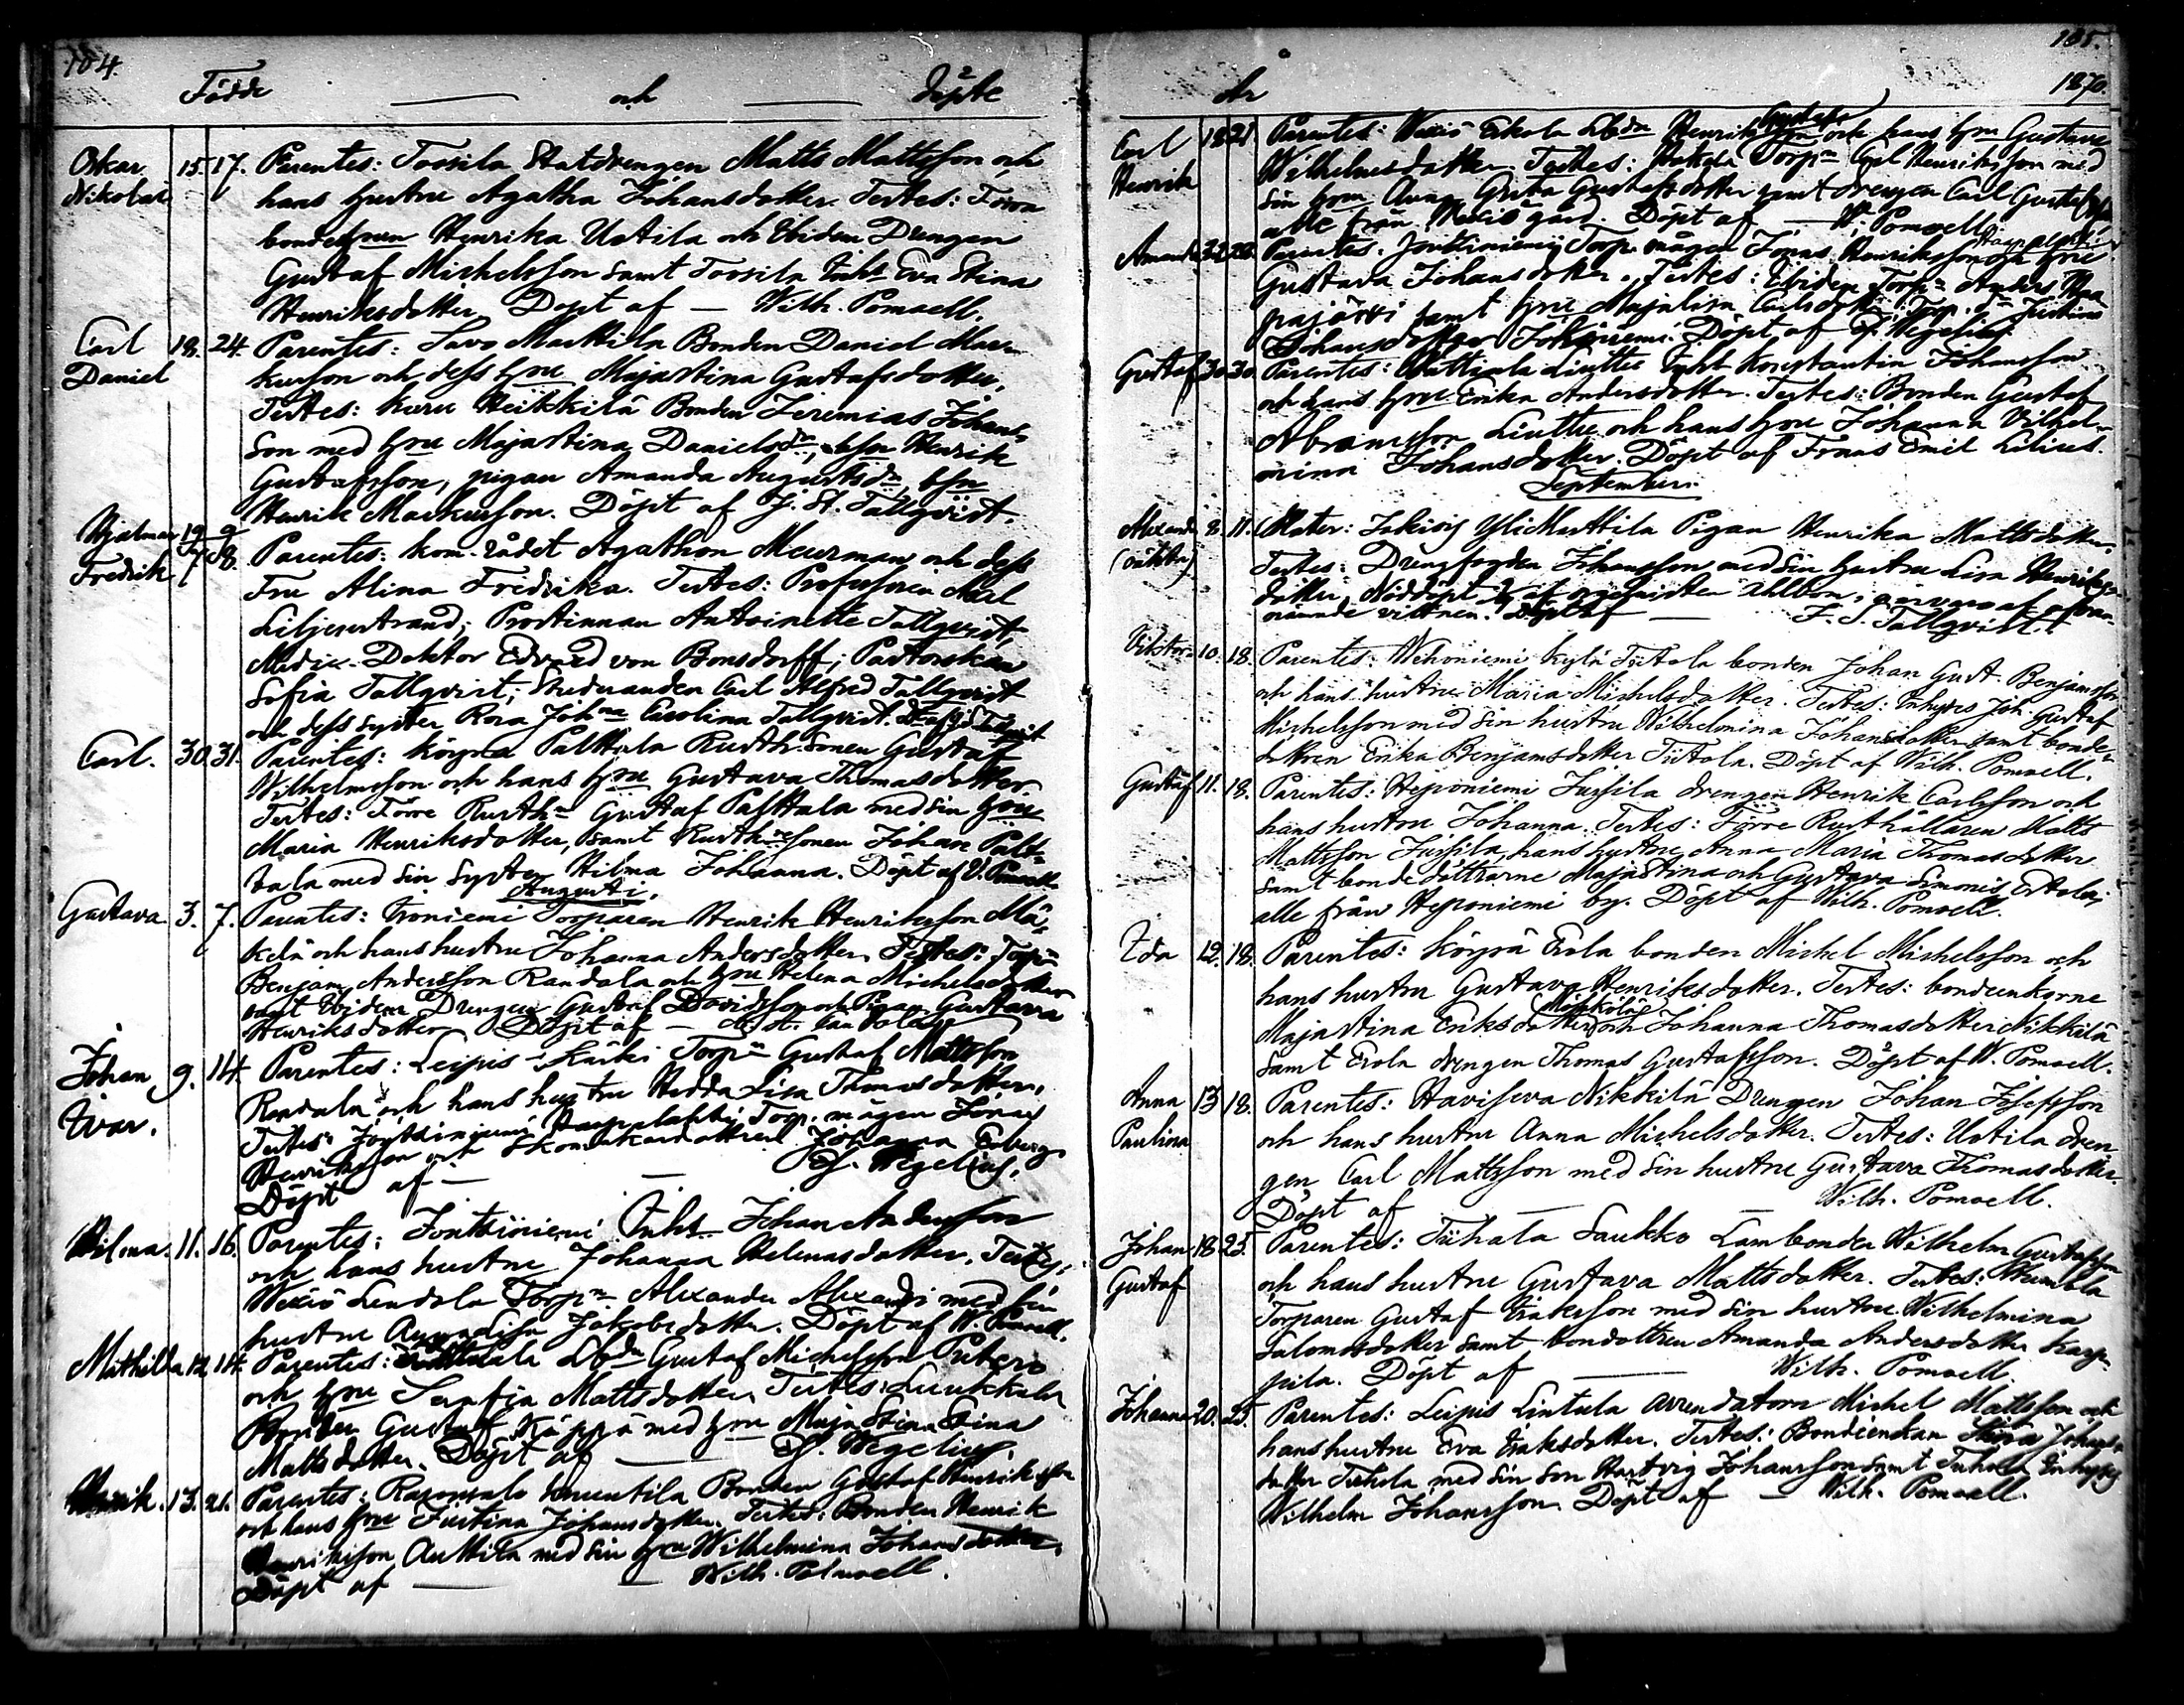 184.
Födde — och — döpte
Oskar Nikolai 15. 17. Parentes: Toosila Statdrengen Matts Mattsson och
hans hustru Agatha Johansdotter. Testes: Torva
bondehrun Henrika Uotila och Ibidem Drengen
Gustaf Michelsson samt Toosila Inhs Eva Stina
Henriksdotter. Döpt af — Wilh. Pomoell.
Carl Daniel 18. 24. Parentes: Savo Marttila Bonden Daniel Mar-
kusson och dess hru Majastina Gustafsdotter.
Testes: Kuru Heikkilä Bonden Jeremias Johans-
son med hru Majastina Danielsdr, bsn Henrik
Gustafsson, pigan Amanda Augustsdr, bsn
Henrik Markusson. Döpt af Fj. St. Tallqvist.
Hjalmar Fredrik 19/7 9/8 Parentes: Kom. rådet Agathon Meurman och dess
Fru Alina Fredrika. Testes: Professorn Axel
Liljenstrand; Prostinnan Antoinette Tallqvist,
Medic. Doktor Edvard von Bonsdorff; Pastorskan
Sofia Tallqvist; Studeranden Carl Alfred Tallqvist
och dess syster Rosa Johna Carolina Tallqvist. Tallqvist
Carl. 30. 31. Parentes: Köyrä Palttala Rusth. sonen Gustaf
Wilhelmsson och hans hru Gustava Thomasdotter.
Testes: Förre Rusthn Gustaf Palttala med sin hru
Maria Henriksdotter, samt Rusthresonen Johan Palt-
tala med sin syster Hilma Johanna. Döpt af V. Pomoell
Augusti.
Gustava 3. 7. Parentes: Ironiemi Torparen Henrik Henriksson Mä-
kelä och hans hustru Johanna Andersdotter. Testes: Torpn
Benjam. Andersson Randala och hru Helena Michelsdotter
samt Ibidem Drengen Gustaf Davidsson och Pigan Gustava
Henriksdotter. Döpt af —
Johan Ivar. 9. 14. Parentes: Leipis Kärki Torpn Gustaf Mattsson
Randala och hans hustru Hedda Lisa Thomasdotter.
Testes: Jonttiniemi Torp. mågen Jonas
Henriksson och Skomakaredottren Johanna Enberg.
Döpt af — — Wegelius.
Hilma. 11. 16. Parentes: Jonttiniemi Inhs Johan Andersson
och hans hustru Johanna Helenasdotter. Testes:
Wexiö Lendola Torpn Alexander Alexandri med sin
hustru Annalisa Jakobsdotter. Döpt af W. Pomoell.
Mathilda 12. 14. Parentes: Lbdn Gustaf Michelsson Putero
och hru Serafia Mattsdotter. Testes: Liuttala
Bonden Gustaf Käppä med hru Maja Stina Stina
Mattsdotter. Döpt af — Wegelius.
Henrik. 13. 21. Parentes: Bonden Gustaf Henriksson
och hans hru Justina Johansdotter. Testes: Bonden Henrik
Henriksson Anttila med sin hru Wilhelmina Johansdotter.
Döpt af — — Wilh. Polmoell.
185.
År 1870.
Carl Henrik 18 21 Parentes: Wexiö Eskola Lbdn Henrik Gustafsson och hans hru Gustava
Wilhelmsdotter. Testes: Torpn Carl Henriksson med
sin hru Anna Greta Gustafsdotter samt drengen Carl Gustafsson,
alle från Wexiö gård. Döpt af — W. Pomoell.
Amanda 22 28. Parentes: Jonttiniemi Torp. mågen Jonas Henriksson och hru
Gustava Johansdotter. Testes: Ibidem Torpn Anders Haa-
pajärvi samt hru Majalisa Carlsdotter, Torp. dr Justina
Johansdotter. Döpt af Wegelius.
Gustaf 30. 30. Parentes: Liuttu Inhs Konstantin Johansson
och hans hru Erika Andersdotter. Testes: Bonden Gustaf
Abramsson Liuttu och hans hru Johanna Vilhel-
mina Johansdotter. Döpt af Frans Emil Lilius.
September.
Alexander (oäkta) 8. 11. Mater: Jokisis Yli Marttila Pigan Henrika Mattsdotter.
Testes: Drängfogden Johansson med sin hustru Lisa Henriks-
dotter. Nöddöpt af organisten Ahlbom, i närvaro af ofvan-
nämnde vittnen. Döpt af — F. S. Tallqvist.
Viktor. 10. 18. Parentes: Wehoniemi Kylä Tiitola bonden Johan Gust. Benjamsson
och hans hustru Maria Michelsdotter. Testes: Inhyses Joh. Gustaf
Michelsson med sin hustru Wilhelmina Johansdotter samt bonde-
dottren Erika Benjamsdotter Tiitola. Döpt af Wilh. Pomoell.
Gustaf 11. 18. Parentes: Heponiemi Jussila drengen Henrik Carlsson och
hans hustru Johanna. Testes: Förre Rusthållaren Matts
Mattsson Jussila, hans hustru Anna Maria Thomasdotter
samt bondedöttrarne Majastina och Gustava Simonis Ertola;
alle från Heponiemi by. Döpt af Wilh. Pomoell.
Ida 12. 18. Parentes: Köyrä Erola bonden Michel Michelsson och
hans hustru Gustava Henriksdotter. Testes: bondeenkorne
Majastina Eriksdotter Mikkola och Johanna Thomasdotter Nikkilä
samt Erola drengen Thomas Gustafsson. Döpt af W. Pomoell.
Anna Paulina 13 18. Parentes: Haviseva Nikkilä Drengen Johan Josefsson
och hans hustru Anna Michelsdotter. Testes: Uotila dren-
gen Carl Mattsson med sin hustru Gustava Thomasdotter.
Döpt af — — Wilh. Pomoell.
Johan Gustaf 18 25. Parentes: Tiihala Saukko Lambonden Wilhelm Gustafsson
och hans hustru Gustava Mattsdotter. Testes:
Torparen Gustaf Eriksson med sin hustru Wilhelmina
Salomosdotter samt bondottren Amanda Andersdotter Karp-
pila. Döpt af — Wilh. Pomoell.
Johanna 20. 25. Parentes: Leipis Lintula arrendatorn Michel Mattsson och
hans hustru Eva Eriksdotter. Testes: Bondeenkan Johans-
dotter Tiihala med sin son Hartvig Johansson samt Tiihala Inhyses
Wilhelm Johansson. Döpt af — Wilh. Pomoell.